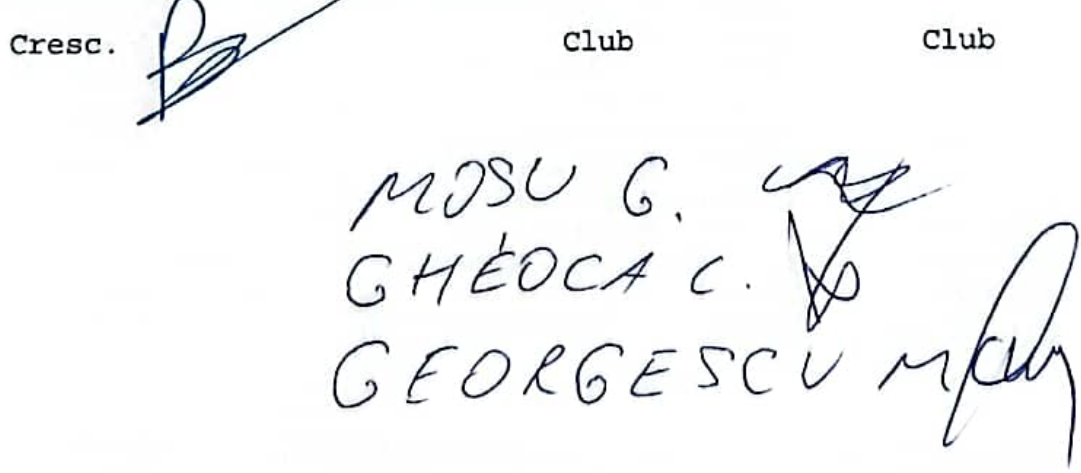 Cresc. Club Club
MOSU G.
GHEOCA C.
GEORGESCU M